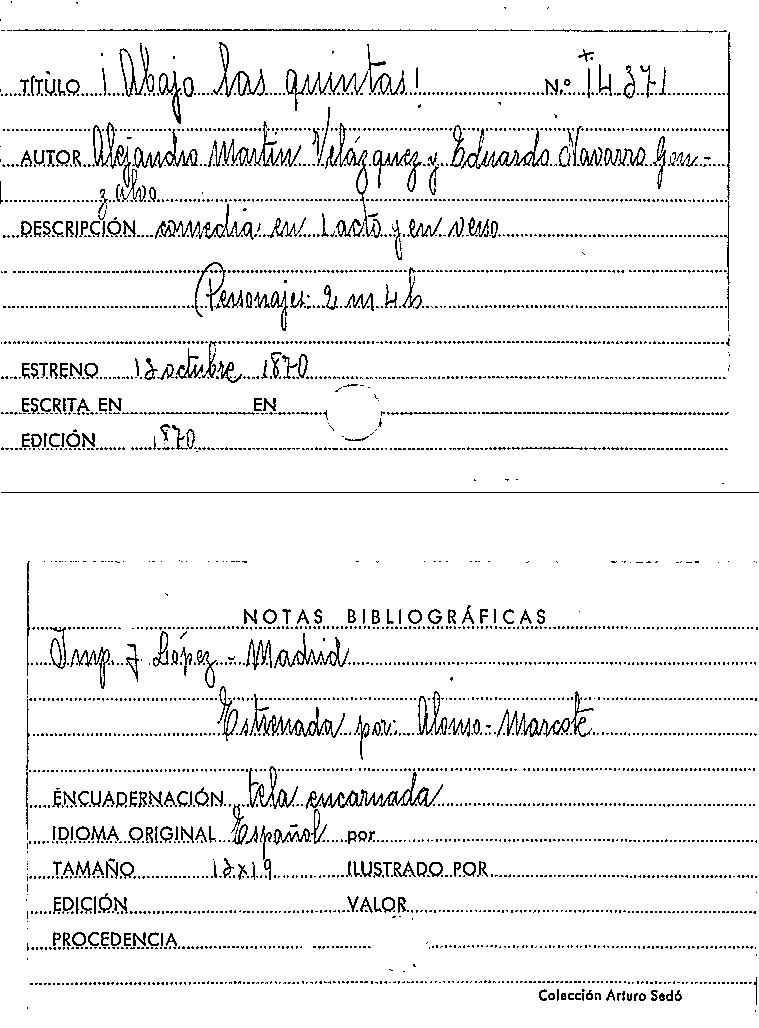 TÍTULO ¡Abajo las quintas! N.º 14371
AUTOR Alejandro Martin Velázquez y Eduardo Navarro Gon-
zalvo
DESCRIPCIÓN comedia en 1 acto y en verso
(Personajes: 2 m 4 h
ESTRENO 12 octubre 1870
ESCRITA EN EN
EDICIÓN 1870
NOTAS BIBLIOGRÁFICAS
Imp. J López - Madrid
Estrenada por: Alonso - Marcote
ENCUADERNACIÓN tela encarnada
IDIOMA ORIGINAL Español por
TAMAÑO 12x19 ILUSTRADO POR
EDICIÓN VALOR
PROCEDENCIA
Colección Arturo Sedó